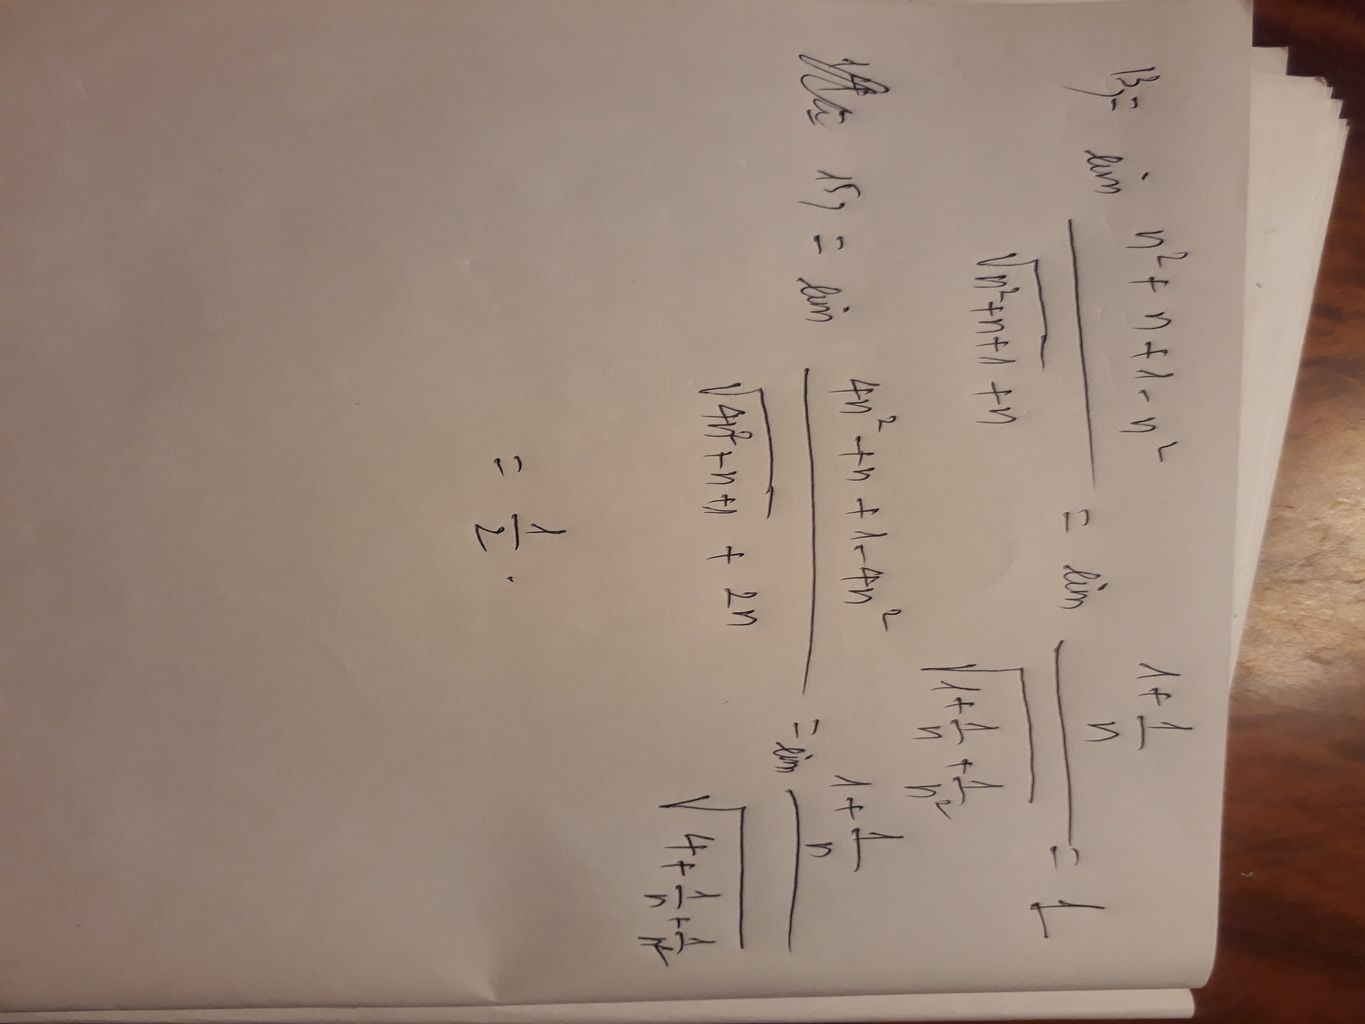 13, = lim (n² + n + 1 - n²) / (√(n²+n+1) + n) = lim (1 + 1/n) / √(1 + 1/n + 1/n²) = 1
15, = lim (4n² + n + 1 - 4n²) / (√(4n²+n+1) + 2n) = lim (1 + 1/n) / √(4 + 1/n + 1/n²)
= 1/2.